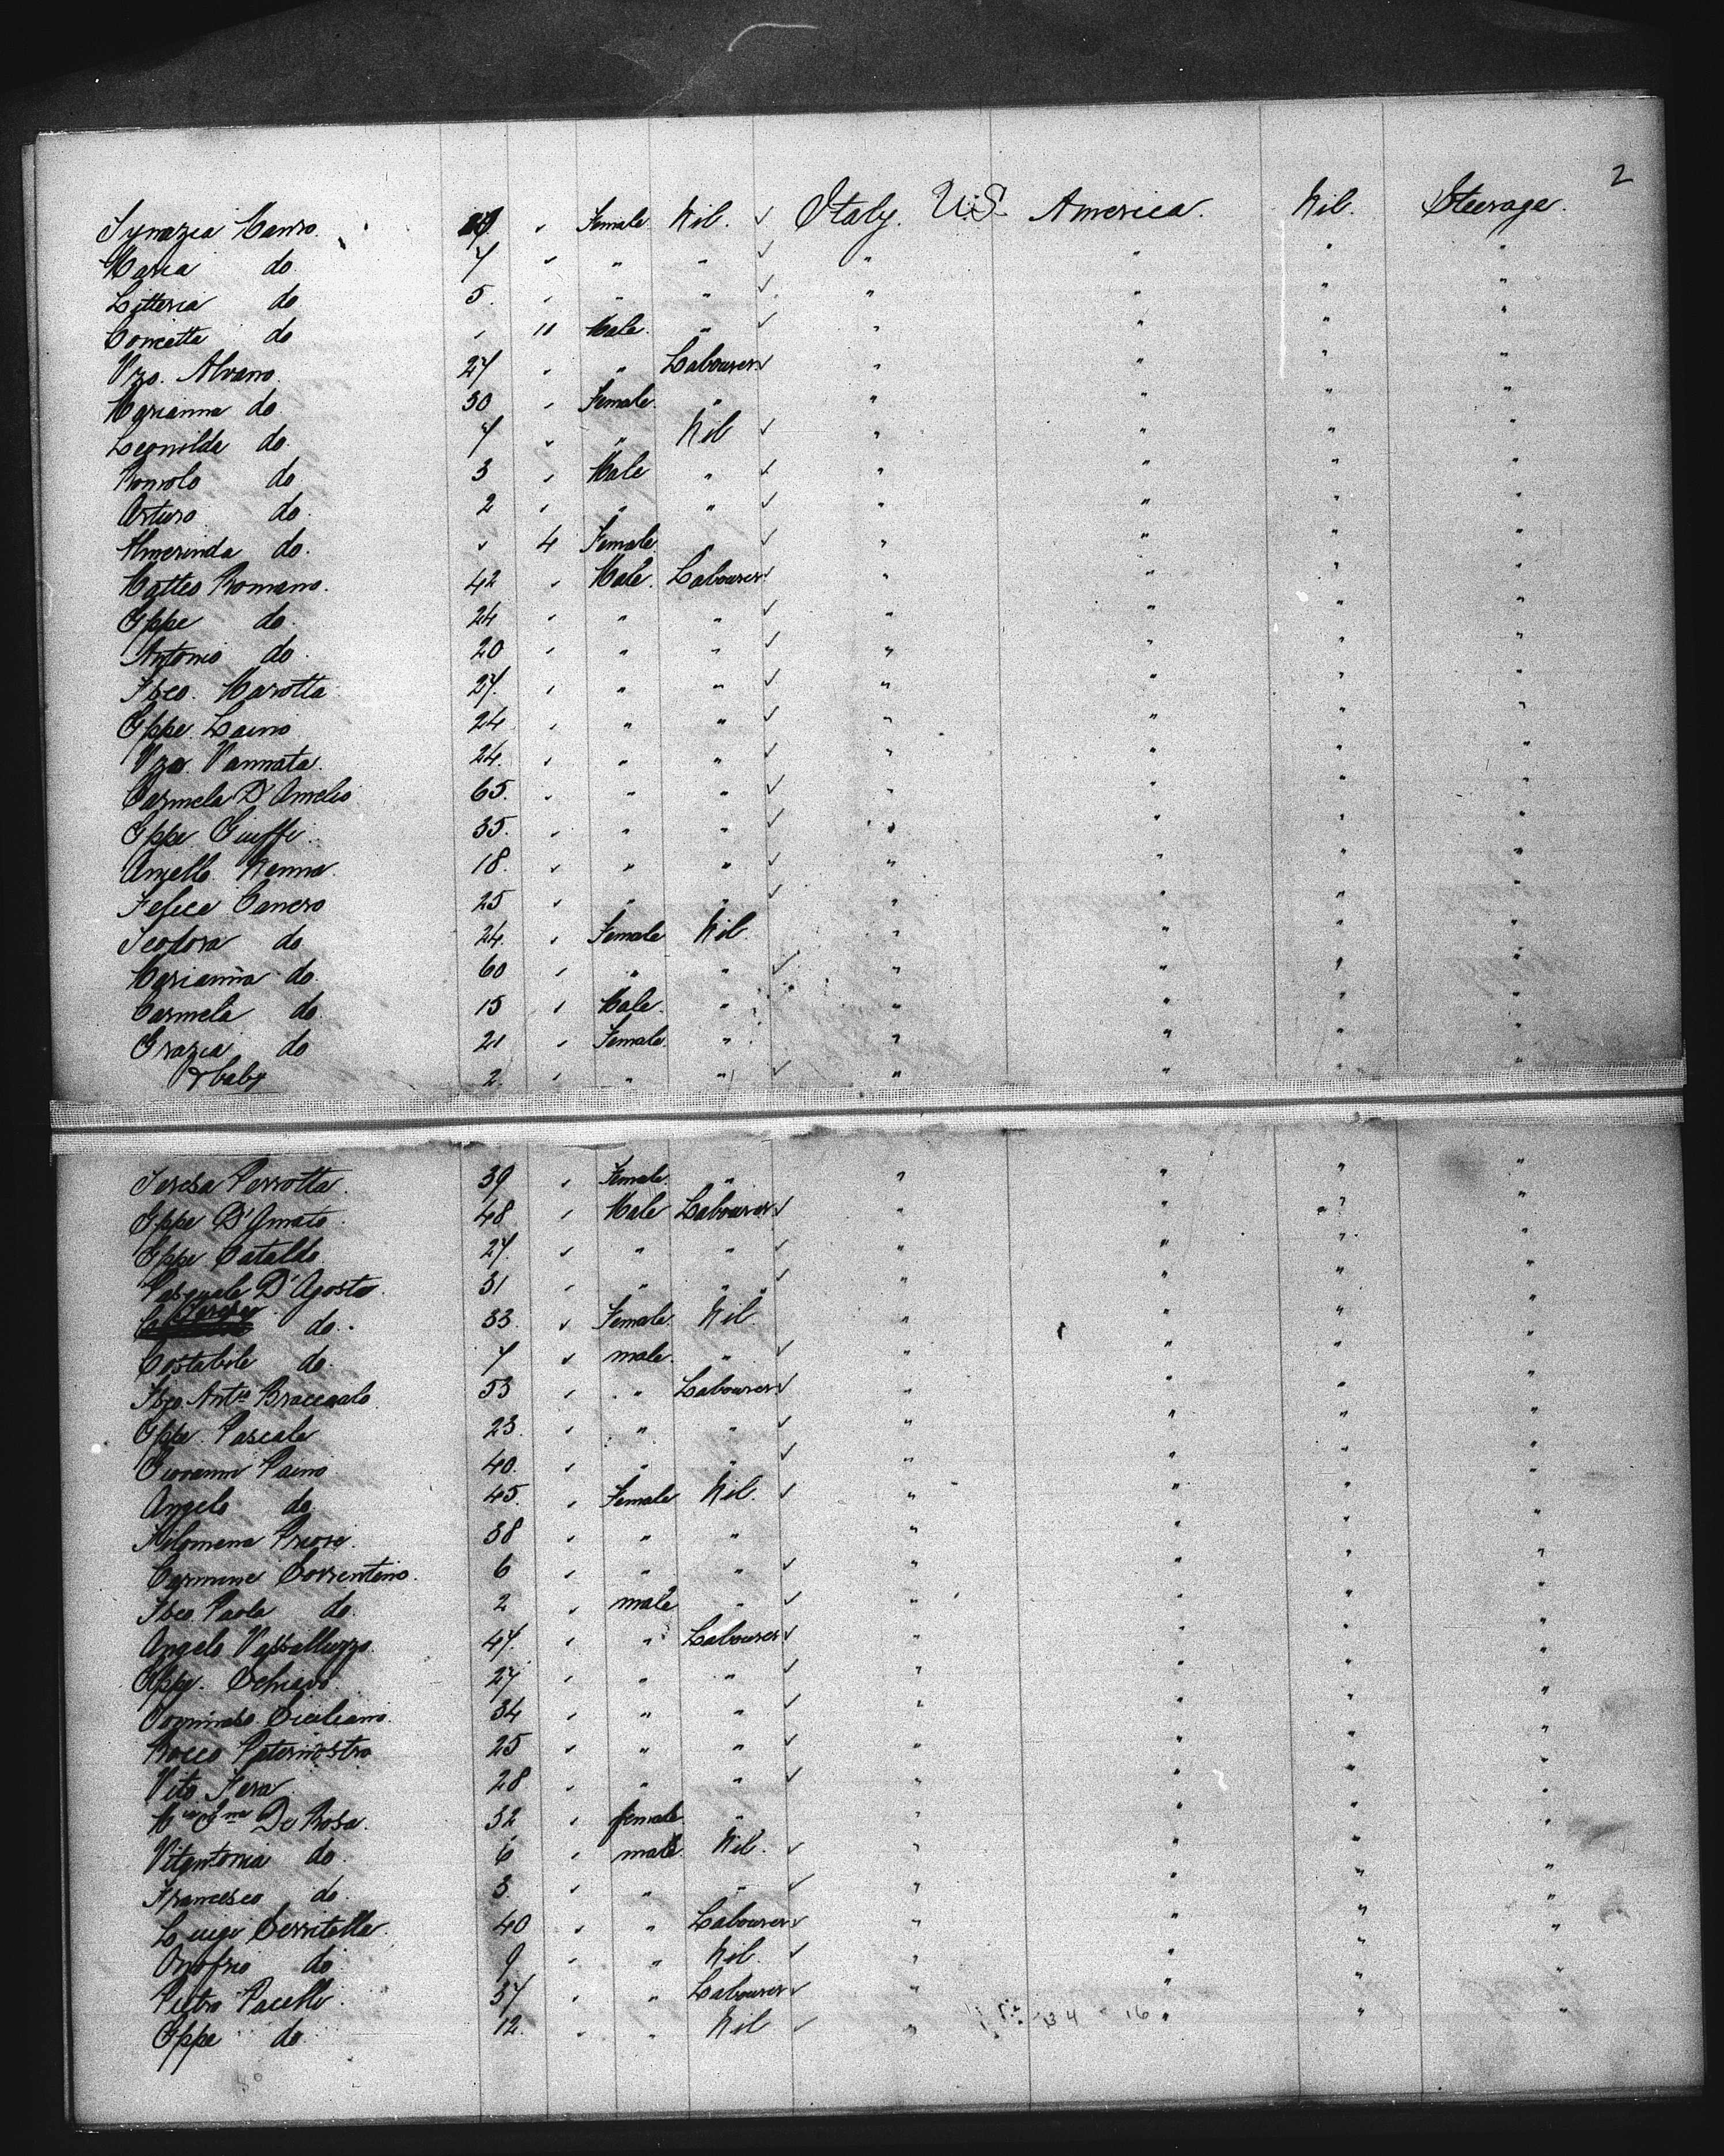 2
Ignazia Manro. 29 " Female Nil. ✓ Italy. U.S. America. Nil. Steerage.
Maria do 7 " " " ✓ " " " "
Litteria do 5. " " " ✓ " " " "
Concetta do " 11 Male. " ✓ " " " "
Vzo. Alvano. 27 " " Labourer ✓ " " " "
Marianna do. 30 " Female. " " " " "
Leonilda do. 7 " " Nil ✓ " " " "
Romolo do 3 " Male " ✓ " " " "
Arturo do. 2 " " " ✓ " " " "
Almerinda do. " 4 Female " ✓ " " " "
Matteo Romano. 42 " Male. Labourer ✓ " " " "
Gppe do. 24 " " " ✓ " " " "
Antonio do. 20 " " " ✓ " " " "
Fsco. Marotta 27. " " " ✓ " " " "
Gppe Laino 24 " " " ✓ " " " "
Vzo. Vannata. 24. " " " ✓ " " " "
Carmela D'Amelio 65. " " " ✓ " " " "
Gppe Giuffi. 35. " " " ✓ " " " "
Aniello Nenna. 18. " " " ✓ " " " "
Felice Canero 25 " " " ✓ " " " "
Teodora do. 24. " Female Nil. " " " "
Marianna do. 60 " " " ✓ " " " "
Carmela do. 15 " Male. " " " " "
Grazia do 21 " Female. " " " " "
& baby 2. " " " ✓ " " " "
Teresa Perrotta. 39 " Female. " " " " "
Gppe D'Amato. 48 " Male Labourer ✓ " " " "
Gppe Cataldo. 27. " " " ✓ " " " "
Pasquale D'Agosto. 31 " " " ✓ " " " "
Teresa do. 33. " Female. Nil. " " " "
Costabile do. 7 " male. " ✓ " " " "
Fsco. Antio Braccaalo 53 " " Labourer ✓ " " " "
Gppe. Pascale 23. " " " ✓ " " " "
Giovanni Paino 40. " " " ✓ " " " "
Angelo do 45. " Female Nil. ✓ " " " "
Filomena Priore. 38 " " " " " " "
Carmine Sorrentino. 6 " " " ✓ " " " "
Fsco. Paolo do. 2 " male " ✓ " " " "
Angelo Vassalluzzo. 47. " " Labourer ✓ " " " "
Gppe. Schiavo. 27 " " " ✓ " " " "
Dominico Siciliano. 34 " " " ✓ " " " "
Rocco Paternostro 25 " " " ✓ " " " "
Vito Fera 28 " " " ✓ " " " "
Mia Gma De Rosa. 32 " female. " " " " "
Vitantonia do. 6 " male. Nil. ✓ " " " "
Francesco do. 3. " " " ✓ " " " "
Luigi Serritella. 40 " " Labourer ✓ " " " "
Onofrio do 9 " " Nil. ✓ " " " "
Pietro Pacelli. 37 " " Labourer ✓ " " " "
Gppe do 12. " " Nil ✓ " " " "